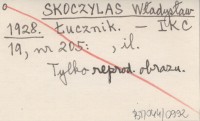 SKOCZYLAS Władysław
1928. Łucznik. — IKC
19, nr 205: , il.
Tylko reprod. obrazu.